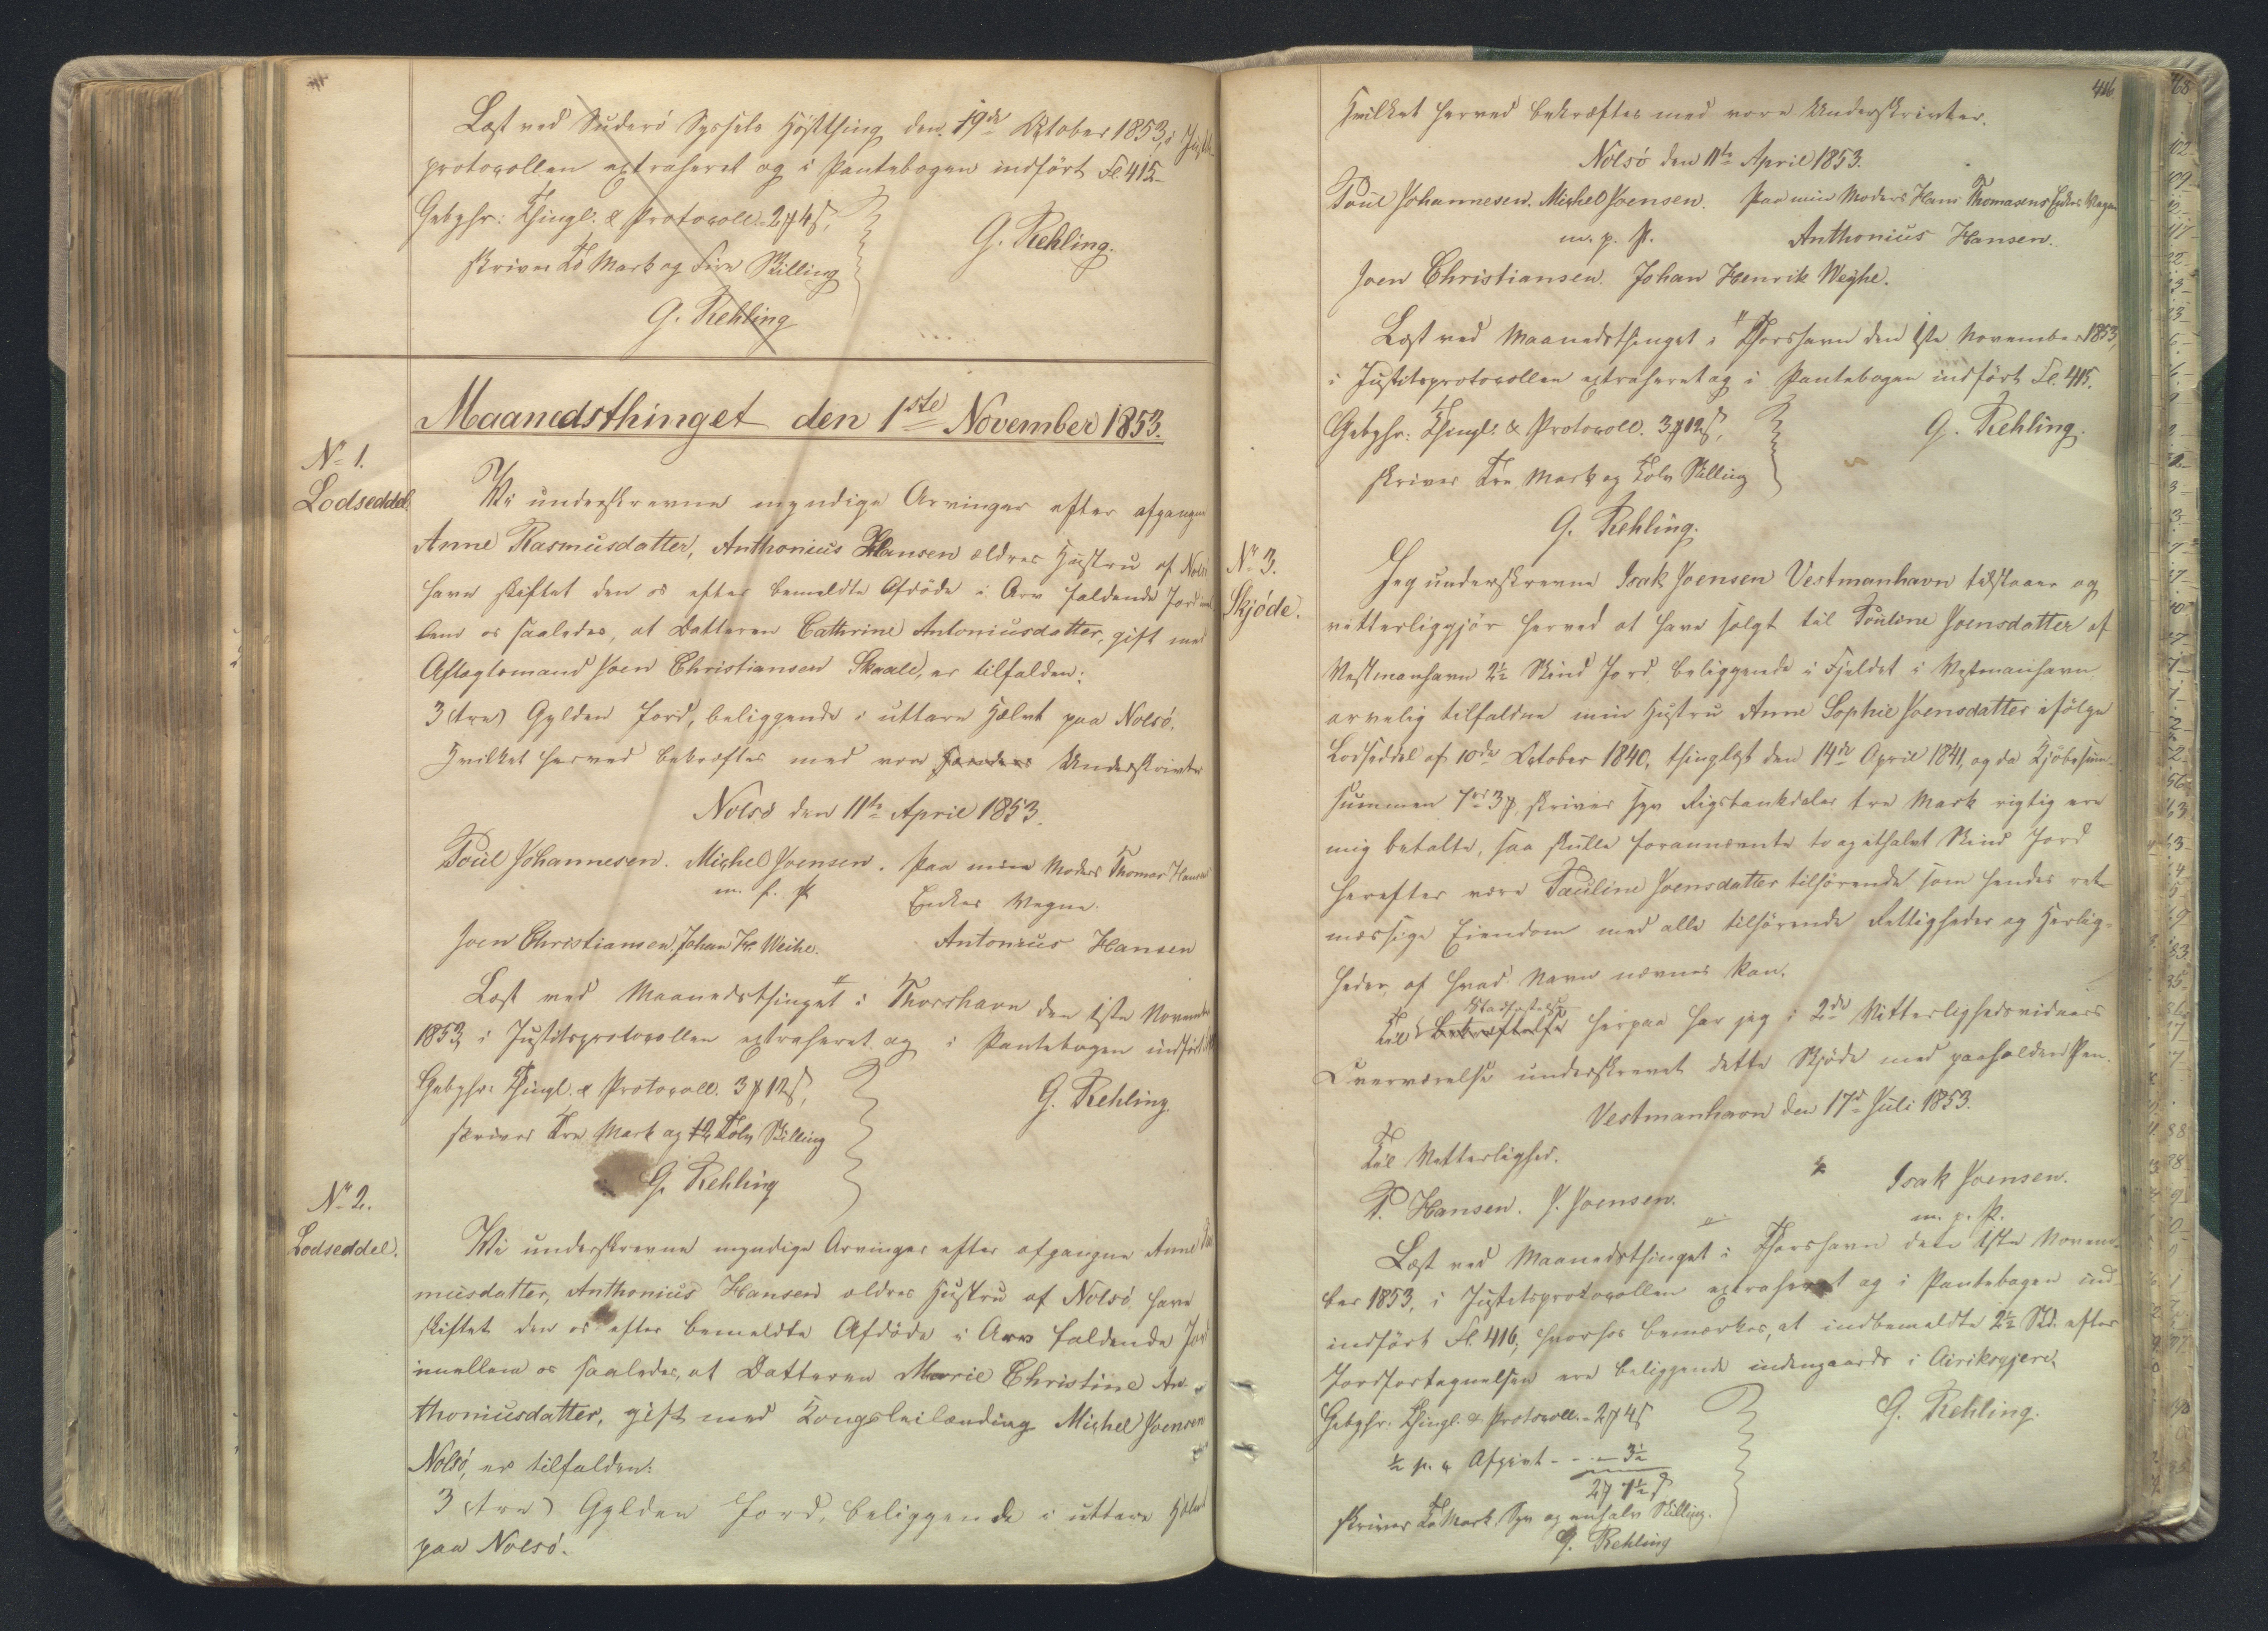 Læst ved Suderö Syssels Høstthing den 19de October 1853, i Justits-
protocollen extraheret og i Pantebogen indført Fol. 415
Gebyhr: Thingl. & Protocoll. 2 ℳ 4 ß,
skriver To Mark og Fire Skilling
G. Rehling.
G. Rehling
Maanedsthinget den 1ste November 1853.
No 1.
Lodseddel.
Vi underskrevne myndige Arvinger efter afgangne
Anne Rasmusdatter, Anthonius Hansen ældres Hustru af Nolsö
have skiftet den os efter bemeldte Afdöde i Arv faldende Jord imel-
lem os saaledes, at Datteren Cathrine Antoniusdatter, gift med
Aftægtsmand Joen Christiansen Skaale, er tilfalden:
3 (tre) Gylden Jord, beliggende i uttare Helvt paa Nolsö.
Hvilket herved bekræftes med vore Hænders Underskrivter
Nolsö den 11te April 1853.
Poul Johannesen. Michel Joensen. Paa min Moders Thomas Hansens
m. f. P. Enkes Vegne.
Joen Christiansen, Johan H. Weihe. Antonius Hansen
Læst ved Maanedsthinget i Thorshavn den 1ste November
1853, i Justitsprotocollen extraheret og i Pantebogen indført
Gebyhr: Thingl. & Protocoll. 3 ℳ 12 ß,
skriver Tre Mark og Tolv Skilling
G. Rehling.
G. Rehling
No 2.
Lodseddel.
Vi underskrevne myndige Arvinger efter afgangne Anne Ras-
musdatter, Anthonius Hansens ældres Hustru af Nolsö have
skiftet den os efter bemeldte Afdöde i Arv faldende Jord
imellem os saaledes, at Datteren Marie Christine An-
thoniusdatter, gift med Kongsleilænding Michel Joensen
Nolsö, er tilfalden:
3 (tre) Gylden Jord, beliggende i uttare Helvt
paa Nolsö.
416
Hvilket herved bekræftes med vore Underskrivter.
Nolsö den 11te April 1853.
Poul Johannesen. Michel Joensen. Paa min Moders Hans Thomasens Enkes Vegne
m. p. P. Anthonius Hansen.
Joen Christiansen. Johan Henrik Weyhe.
Læst ved Maanedsthinget i Thorshavn den 1ste November 1853,
i Justitsprotocollen extraheret og i Pantebogen indført Fol. 415.
Gebyhr: Thingl. & Protocoll. 3 ℳ 12 ß,
skriver Tre Mark og Tolv Skilling
G. Rehling.
G. Rehling.
No 3.
Skjöde.
Jeg underskrevne Isak Joensen Vestmanhavn tilstaaer og
vitterliggjör herved at have solgt til Pouline Joensdatter af
Vestmanhavn 2½ Skind Jord beliggende i Fjeldet i Vestmanhavn
arvelig tilfalden min Hustru Anne Sophie Joensdatter ifölge
Lodseddel af 10de October 1840, thinglæst den 14de April 1841, og da Kjöbesum-
summen 7 rd 3 ℳ, skriver syv Rigsbankdaler tre Mark rigtig ere
mig betalte, saa skulle forannævnte to og ethalvt Skind Jord
herefter være Pauline Joensdatter tilhörende som hendes ret-
mæssige Eiendom med alle tilhörende Rettigheder og Herlig-
heder, af hvad Navn nævnes kan.
Stadfæstelse
Til Bekræftelse herpaa har jeg i 2de Vitterlighedsvidners
Overværelse underskrevet dette Skjöde med paaholden Pen.
Vestmanhavn den 17de Juli 1853.
Til Vitterlighed.
Isak Joensen.
P. Hansen. J. Joensen.
m. p. P.
Læst ved Maanedsthinget i Thorshavn den 1ste Novem-
ber 1853, i Justitsprotocollen extraheret og i Pantebogen ind-
indført Fol. 416, hvorhos bemærkes, at indbemeldte 2½ Skd. efter
Jordfortegnelsen ere beliggende indengaards i Airiksgjere.
Gebyhr: Thingl. & Protocoll. - 2 ℳ 4 ß
½ p. C. Afgivt - - - 3½
2 ℳ 7½ ß
skriver To Mark Syv og enhalv Skilling.
G. Rehling.
G. Rehling